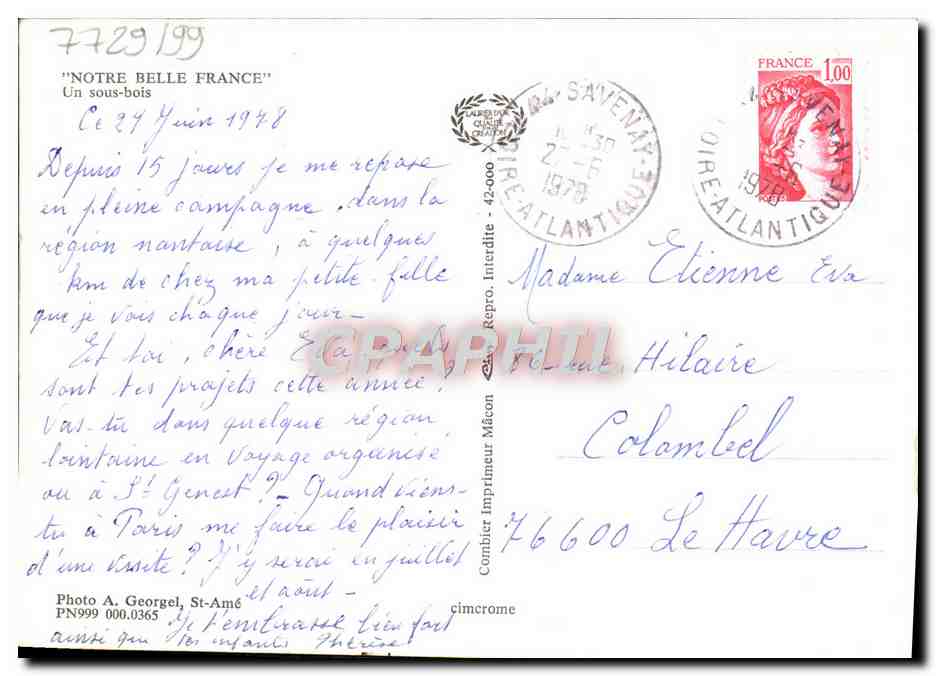 7729/99
"NOTRE BELLE FRANCE"
Un sous-bois
Ce 24 Juin 1978
Depuis 15 jours je me repose
en pleine campagne, dans la
région nantaise, à quelques
km de chez ma petite-fille
que je vois chaque jour -
Et toi, chère Eva, quels
sont tes projets cette année?
Vas-tu dans quelque région
lointaine en voyage organisé
ou à St Genest? - Quand viens-
tu à Paris me faire le plaisir
d'une visite? J'y serai en juillet
et août -
Je t'embrasse bien fort
ainsi que tes enfants Thérèse
Photo A. Georgel, St-Amé
PN999 000.0365
cimcrome
LAURIER D'OR
DE LA
QUALITÉ
CREATION
Combier Imprimeur Mâcon
Repro. Interdite - 42-000
CPAPHIL
SAVENAY
LOIRE-ATLANTIQUE
1978
FRANCE 1,00
SAVENAY
LOIRE-ATLANTIQUE
1978
Madame Etienne Eva
rue Hilaire
Colombel
76600 Le Havre